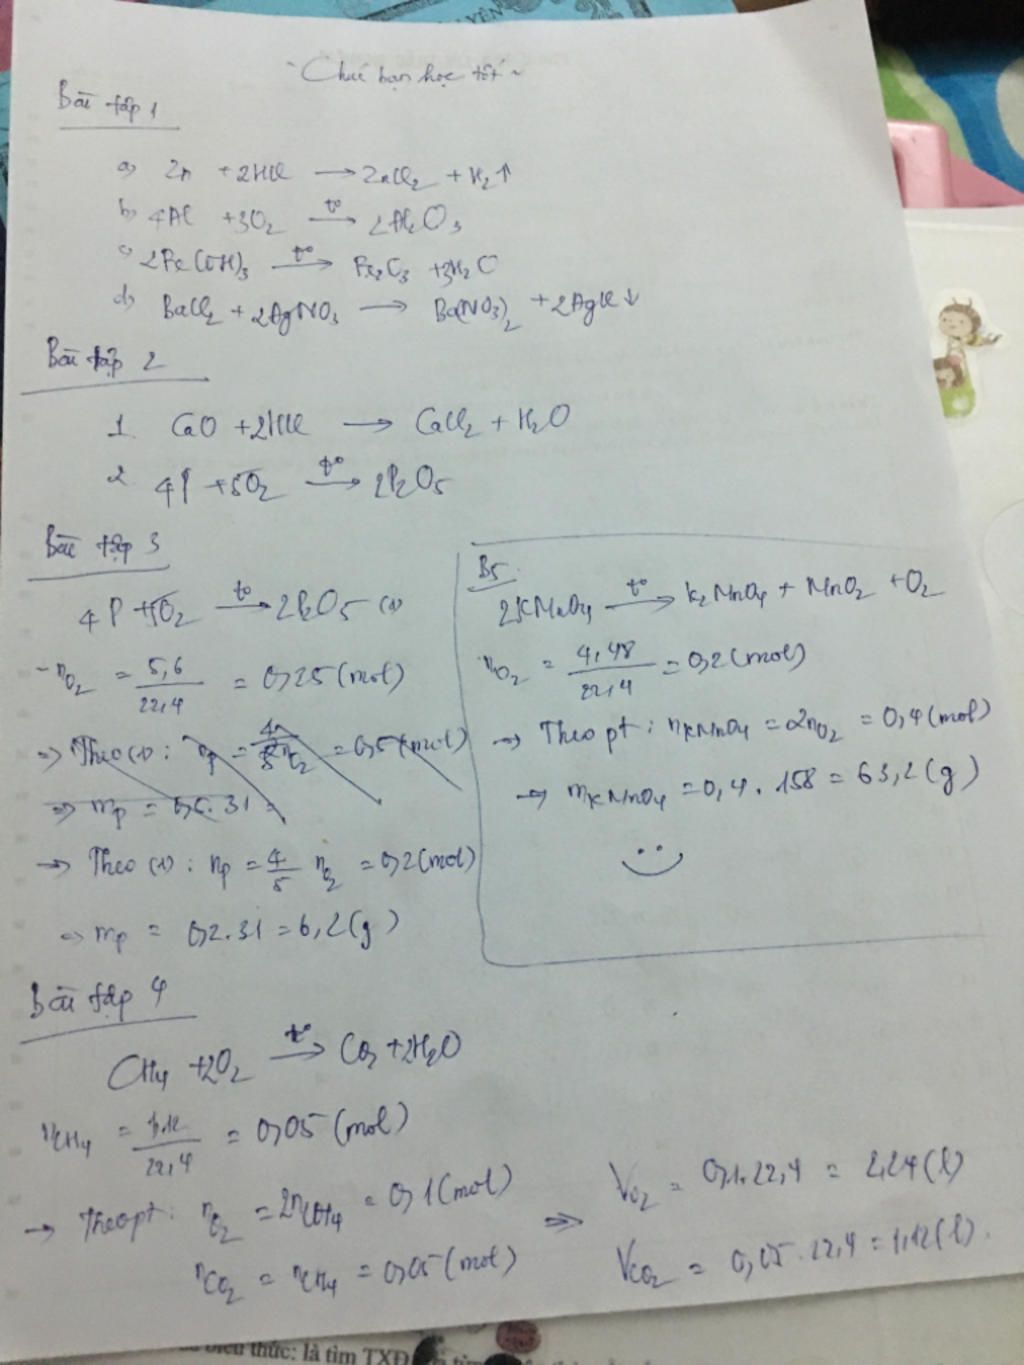 ~ Chúc bạn học tốt ~
Bài tập 1
a) Zn + 2HCl → ZnCl2 + H2↑
b) 4Al + 3O2 t°→ 2Al2O3
c) 2Fe(OH)3 t°→ Fe2O3 + 3H2O
d) BaCl2 + 2AgNO3 → Ba(NO3)2 + 2AgCl↓
Bài tập 2
1. CaO + 2HCl → CaCl2 + H2O
2 4P + 5O2 t°→ 2P2O5
Bài tập 3
4P + 5O2 t°→ 2P2O5 (1)
- nO2 = 5,6/22,4 = 0,25 (mol)
=> Theo (1) : nP = 4/5 nO2 = 0,5 (mol)
=> mP = 0,5.31 =
-> Theo (1) : nP = 4/5 nO2 = 0,2 (mol)
=> mP = 0,2.31 = 6,2 (g)
B5
2KMnO4 t°→ K2MnO4 + MnO2 + O2
nO2 = 4,48/22,4 = 0,2 (mol)
-> Theo pt : nKMnO4 = 2nO2 = 0,4 (mol)
-> mKMnO4 = 0,4 . 158 = 63,2 (g)
Bài tập 4
CH4 + 2O2 t°→ CO2 + 2H2O
nCH4 = 1,12/22,4 = 0,05 (mol)
-> Theo pt : nO2 = 2nCH4 = 0,1 (mol)
nCO2 = nCH4 = 0,05 (mol)
=> VO2 = 0,1.22,4 = 2,24 (l)
VCO2 = 0,05.22,4 = 1,12 (l).
biểu thức: là tìm TXĐ